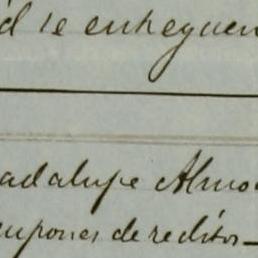 se entreguen
adalupe Almo
cupones de reditos